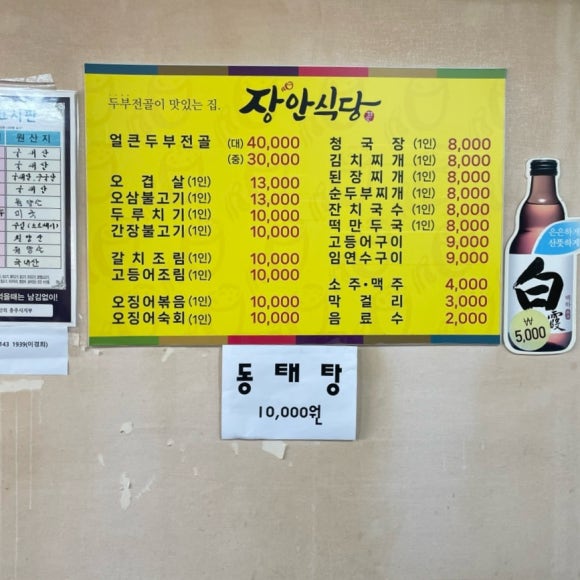 두부전골이 맛있는 집. 장안식당
얼큰두부전골 (대) 40,000
(중) 30,000
오겹살 (1인) 13,000
오삼불고기 (1인) 13,000
두루치기 (1인) 10,000
간장불고기 (1인) 10,000
갈치조림 (1인) 10,000
고등어조림 (1인) 10,000
오징어볶음 (1인) 10,000
오징어숙회 (1인) 10,000
청국장 (1인) 8,000
김치찌개 (1인) 8,000
된장찌개 (1인) 8,000
순두부찌개 (1인) 8,000
잔치국수 (1인) 8,000
떡만두국 (1인) 8,000
고등어구이 9,000
임연수구이 9,000
소주·맥주 4,000
막걸리 3,000
음료수 2,000
동태탕
10,000원
원산지
국내산
국내산
국내산
국내산
먹을때는 남김없이!
143 1939(이경희)
은은하게
산뜻하게
白霞
₩
5,000